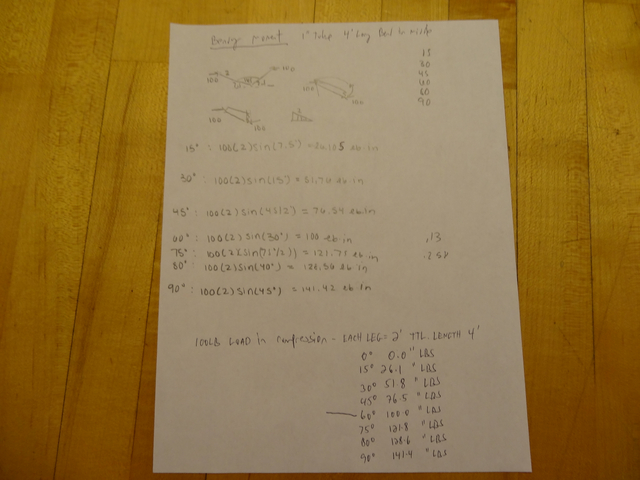 Bending Moment 1" Tube 4' Long Bend in middle
15
30
45
60
90
100
100
100
100
100
15° : 100(2)sin(7.5°) = 26.105 lb in
30° : 100(2)sin(15°) = 51.76 lb in
45° : 100(2)sin(45/2) = 76.54 lb in
60° : 100(2)sin(30°) = 100 lb in
.13
75° : 100(2)(sin(75/2)) = 121.75 lb in
80° : 100(2)sin(40°) = 128.56 lb in
90° : 100(2)sin(45°) = 141.42 lb in
100LB LOAD in compression - EACH LEG = 2' TTL. LENGTH 4'
0° 0.0 " LBS
15° 26.1 " LBS
30° 51.8 " LBS
45° 76.5 " LBS
60° 100.0 " LBS
75° 121.8 " LBS
80° 128.6 " LBS
90° 141.4 " LBS